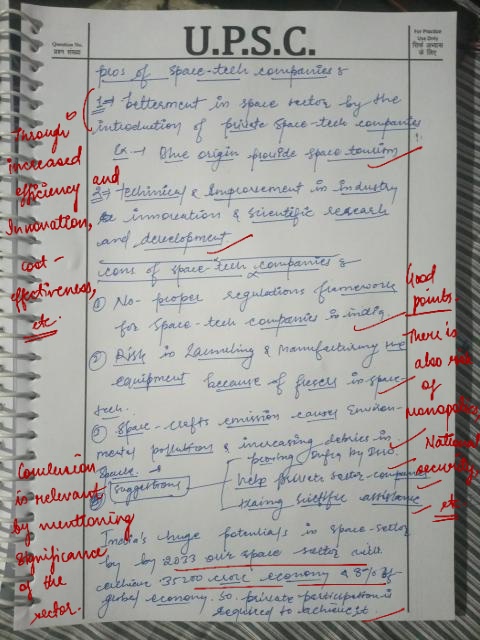 Question No.
प्रश्न संख्या
U.P.S.C.
For Practice
Use Only
सिर्फ अभ्यास
के लिए
pros of space-tech companies
1) betterment in space sector by the
introduction of private space-tech companies
Ex. → Blue origin provide space tourism
2) Techinical & Improvement in industry
innovation & scientific research
and development.
cons of space-tech companies
① No- proper regulations framework
for space-tech companies in india
② Risk in Launching & Manufacturing
equipment because of in space-
tech.
③ Space-crafts emission causes Environ-
mental pollution & increasing debries in
space.
Suggestions
proving infra by
help private sector companies
assistance
India's huge potentials in space-sector
by by 2033 our space sector will
achieve 35200 crore economy & 8% of
global economy. So. private participation is
required to achieve it.
Through
increased
efficiency and
Innovation,
cost-
effectiveness,
etc.
Good
points.
There is
also risk
of
monopoly,
National
security,
etc
Conclusion
is relevant
by mentioning
significance
of the
sector.